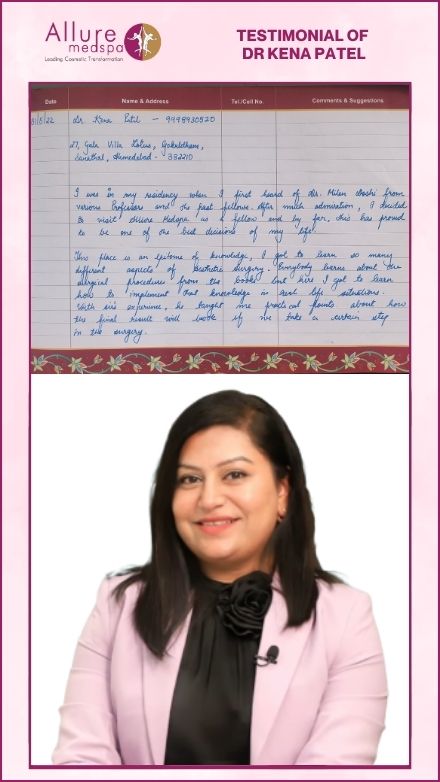 Allure
medspa
Leading Cosmetic Transformation
TESTIMONIAL OF
DR KENA PATEL
Date Name & Address Tel./Cell No. Comments & Suggestions
Dr. Kena Patel - 9998930520
27, Gala Villa Lotus, Gokuldham,
Sanathal, Ahmedabad - 382210
I was in my residency when I first heard of Dr. Milan Doshi from
various Professors and the past fellows. After much admiration, I decided
to visit Allure Medspa as a fellow and by far, this has proud
to be one of the best decisions of my life.
This place is an epitome of knowledge, I got to learn so many
different aspects of Aesthetic Surgery. Everybody learns about the
surgical procedures from the books but here I got to learn
how to implement that knowledge in real life situations.
With sir's experience, he taught me practical points about how
the final result will look if we take a certain step
in the surgery.